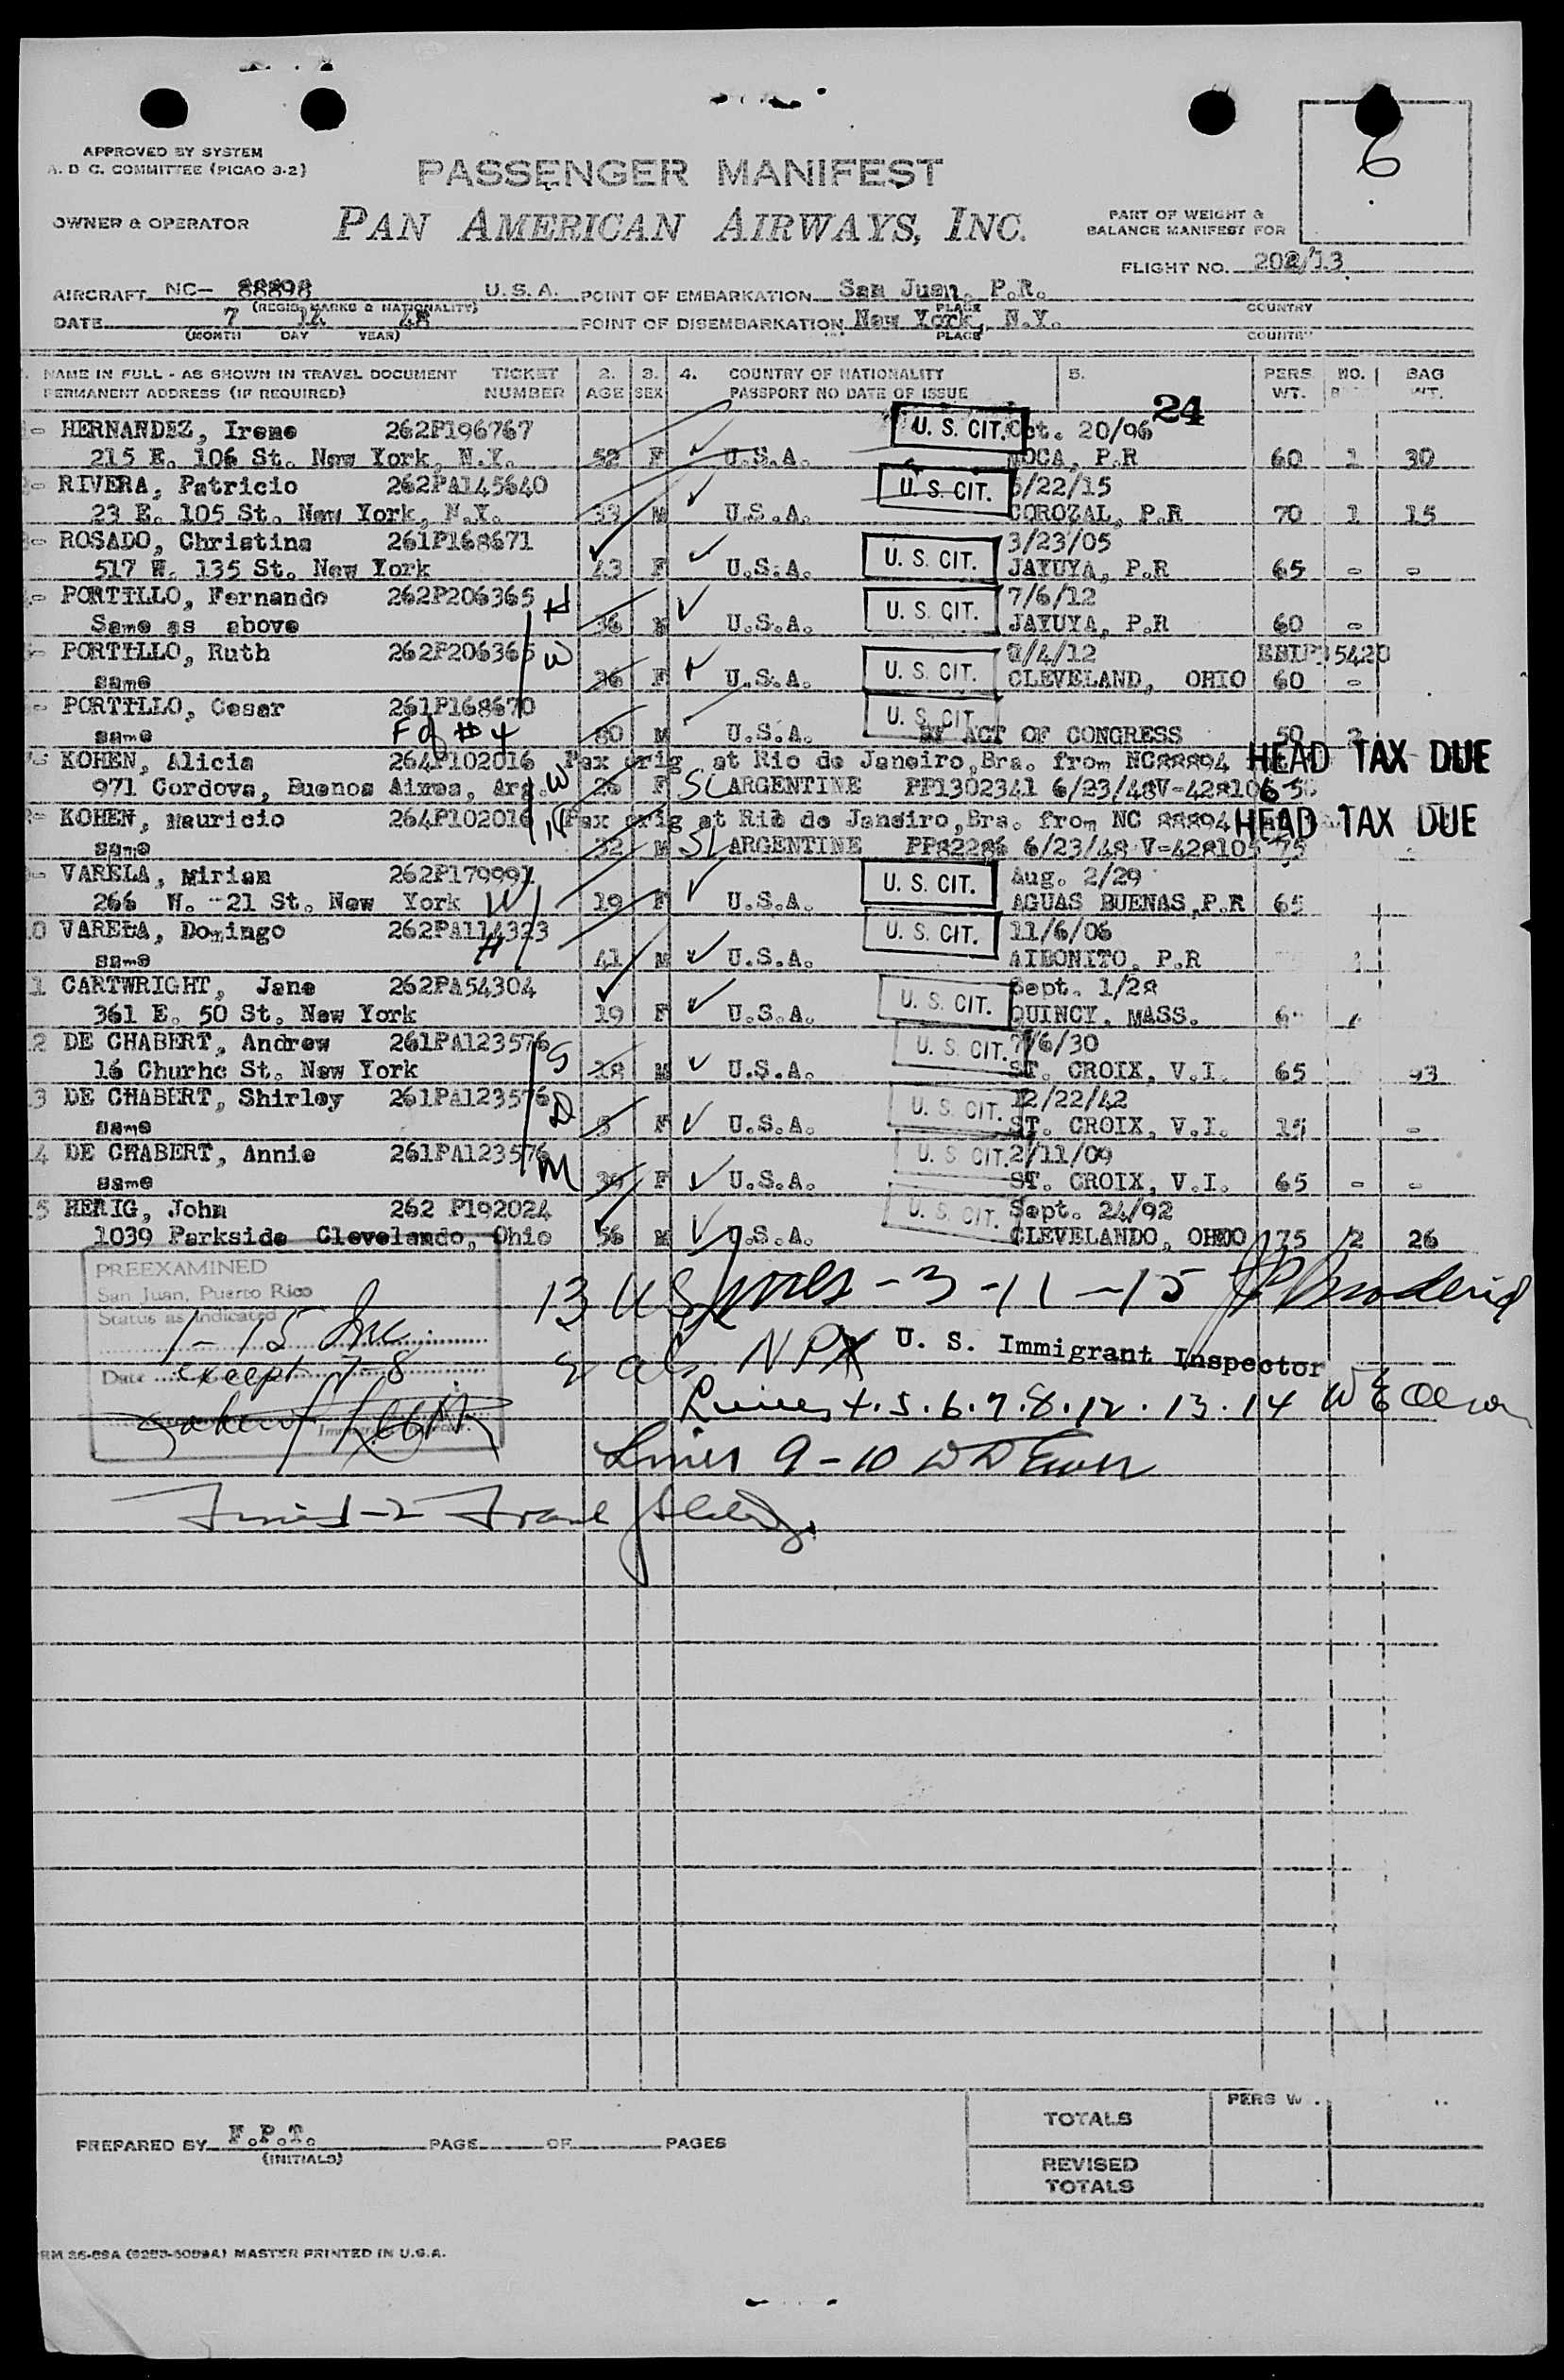 6
APPROVED BY SYSTEM
A. D C. COMMITTEE (PICAO 3-2)
PASSENGER MANIFEST
OWNER & OPERATOR
PAN AMERICAN AIRWAYS, INC.
PART OF WEIGHT &
BALANCE MANIFEST FOR
FLIGHT NO. 202/13
AIRCRAFT NC- 88898 U.S.A. POINT OF EMBARKATION San Juan, P.R.
(REGIS. MARKS & NATIONALITY) PLACE COUNTRY
DATE 7 48 POINT OF DISEMBARKATION New York, N.Y.
(MONTH DAY YEAR) PLACE COUNTRY
NAME IN FULL - AS SHOWN IN TRAVEL DOCUMENT TICKET 2. 3. 4. COUNTRY OF NATIONALITY 5. PERS NO. BAG
PERMANENT ADDRESS (IF REQUIRED) NUMBER AGE SEX PASSPORT NO DATE OF ISSUE WT. WT.
24
HERNANDEZ, Irene 262P196767 U. S. CIT. Oct. 20/96
215 E. 106 St. New York, N.Y. 52 F U.S.A. MOCA, P.R 60 1 30
RIVERA, Patricio 262PA145640 U. S. CIT. 5/22/15
23 E. 105 St. New York, N.Y. 33 M U.S.A. COROZAL, P.R 70 1 15
ROSADO, Christina 261P168671 U. S. CIT. 3/23/05
517 W. 135 St. New York 43 F U.S.A. JAYUYA, P.R 65 - -
PORTILLO, Fernando 262P206365 H U. S. CIT. 7/6/12
Same as above 36 M U.S.A. JAYUYA, P.R 60 -
PORTILLO, Ruth 262P206365 W U. S. CIT. /4/12 5420
same 36 F U.S.A. CLEVELAND, OHIO 60 -
PORTILLO, Cesar 261P168670 U. S. CIT.
same F of #4 80 M U.S.A. BY ACT OF CONGRESS 50 2
KOHEN, Alicia 264P102016 Pax orig at Rio de Janeiro, Bra. from NC88894 HEAD TAX DUE
971 Cordova, Buenos Aires, Arg. W 26 F SL ARGENTINE PP1302341 6/23/48 V-428106
KOHEN, Mauricio 264P102016 Pax orig at Rio de Janeiro, Bra. from NC 88894 HEAD TAX DUE
same 32 M SL ARGENTINE PP82286 6/23/48 V-428105 75
VARELA, Miriam 262P179991 U. S. CIT. Aug. 2/29
266 W. -21 St. New York W 19 F U.S.A. AGUAS BUENAS, P.R 65
10 VARELA, Domingo 262PA114323 U. S. CIT. 11/6/06
same H 41 M U.S.A. AIBONITO, P.R
1 CARTWRIGHT, Jane 262PA54304 U. S. CIT. Sept. 1/28
361 E. 50 St. New York 19 F U.S.A. QUINCY, MASS.
2 DE CHABERT, Andrew 261PA123576 S U. S. CIT. 7/6/30
16 Churhc St. New York 18 M U.S.A. ST. CROIX, V.I. 65 93
3 DE CHABERT, Shirley 261PA123576 D U. S. CIT. 12/22/42
same 5 F U.S.A. ST. CROIX, V.I. 15 -
4 DE CHABERT, Annie 261PA123576 M U. S CIT. 2/11/09
same 39 F U.S.A. ST. CROIX, V.I. 65 - -
5 HERIG, John 262 P192024 U. S. CIT. Sept. 24/92
1039 Parkside Clevelando, Ohio 56 M U.S.A. CLEVELANDO, OHIO 175 2 26
PREEXAMINED
San Juan, Puerto Rico
Status as indicated
1-15 Inc
Date except 7-8
13 US lines - 3 - 11 - 15
NPX U. S. Immigrant Inspector
Lines 4.5.6.7.8.12.13.14 W E Olson
Lines 9-10
Lines 1-2 Frank
TOTALS PERS W
PREPARED BY F.P.T. PAGE OF PAGES
(INITIALS)
REVISED
TOTALS
RM 26-89A (9283-5089A) MASTER PRINTED IN U.S.A.